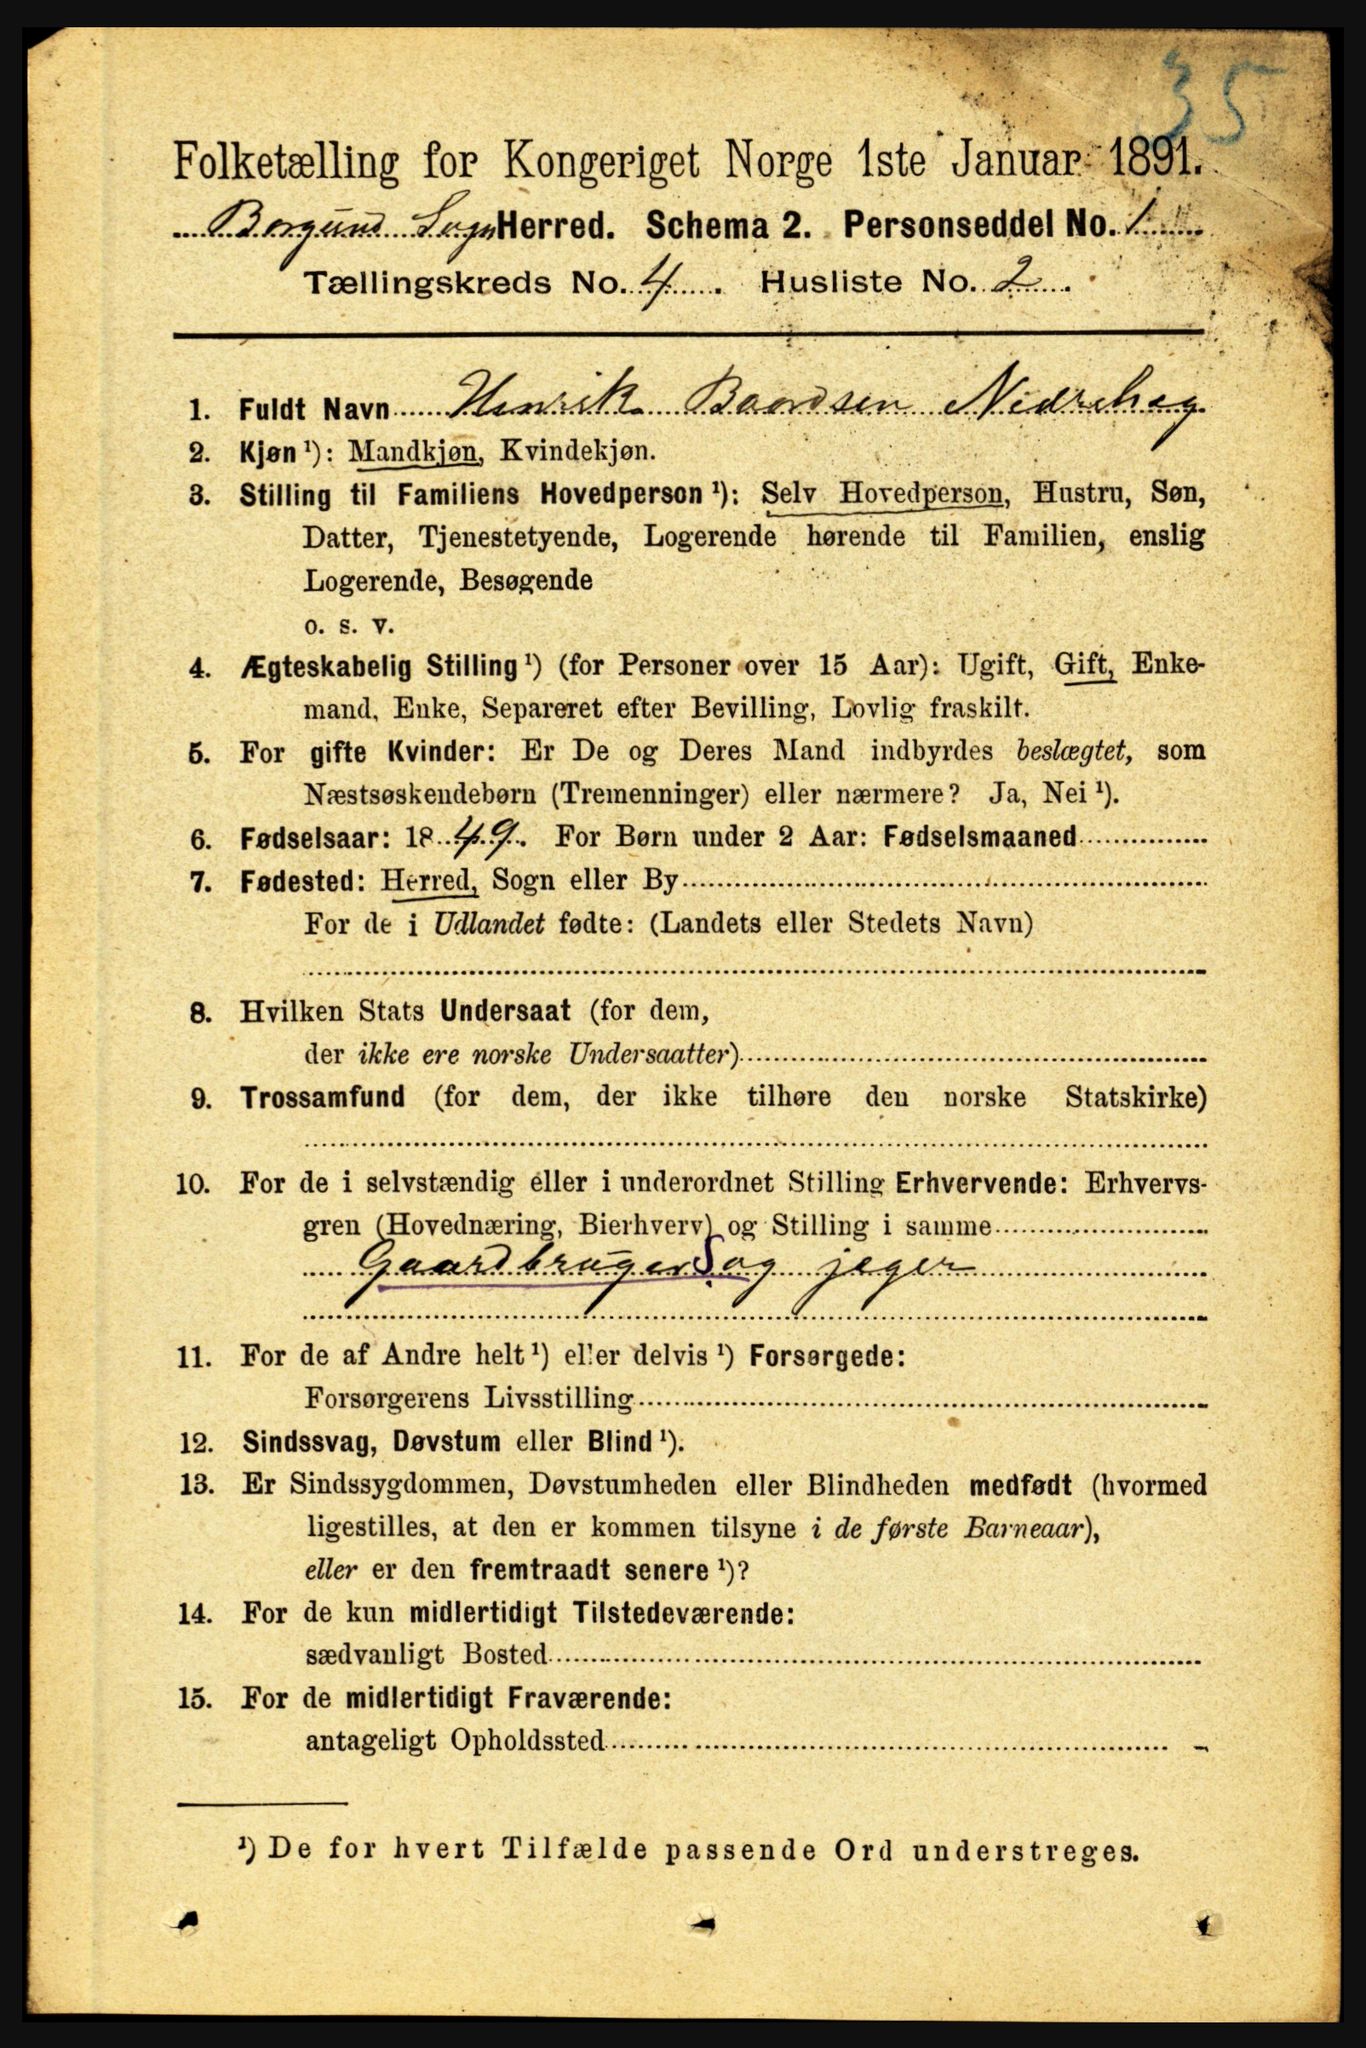 35
Folketælling for Kongeriget Norge 1ste Januar 1891.
Borgund Sogn Herred. Schema 2. Personseddel No. 1
Tællingskreds No. 4. Husliste No. 2.
1. Fuldt Navn Henrik Baardsen Nedrehæg
2. Kjøn ¹): Mandkjøn, Kvindekjøn.
3. Stilling til Familiens Hovedperson ¹): Selv Hovedperson, Hustru, Søn,
Datter, Tjenestetyende, Logerende hørende til Familien, enslig
Logerende, Besøgende
o. s. v.
4. Ægteskabelig Stilling ¹) (for Personer over 15 Aar): Ugift, Gift, Enke-
mand, Enke, Separeret efter Bevilling, Lovlig fraskilt.
5. For gifte Kvinder: Er De og Deres Mand indbyrdes beslægtet, som
Næstsøskendebørn (Tremenninger) eller nærmere? Ja, Nei ¹).
6. Fødselsaar: 1849. For Børn under 2 Aar: Fødselsmaaned
7. Fødested: Herred, Sogn eller By
For de i Udlandet fødte: (Landets eller Stedets Navn)
8. Hvilken Stats Undersaat (for dem,
der ikke ere norske Undersaatter)
9. Trossamfund (for dem, der ikke tilhøre den norske Statskirke)
10. For de i selvstændig eller i underordnet Stilling Erhvervende: Erhvervs-
gren (Hovednæring, Bierhverv) og Stilling i samme
Gaardbruger S og jeger
11. For de af Andre helt ¹) eller delvis ¹) Forsørgede:
Forsørgerens Livsstilling
12. Sindssvag, Døvstum eller Blind ¹).
13. Er Sindssygdommen, Døvstumheden eller Blindheden medfødt (hvormed
ligestilles, at den er kommen tilsyne i de første Barneaar),
eller er den fremtraadt senere ¹)?
14. For de kun midlertidigt Tilstedeværende:
sædvanligt Bosted
15. For de midlertidigt Fraværende:
antageligt Opholdssted
¹) De for hvert Tilfælde passende Ord understreges.